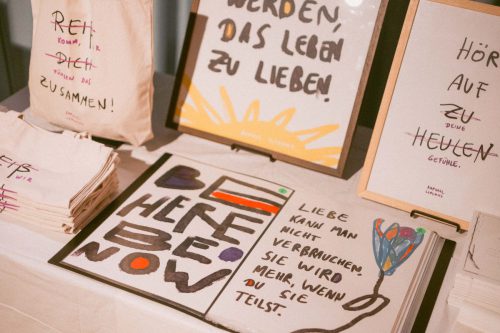 REIß
KOMM,
DICH
FÜHLEN DAS
ZUSAMMEN!
WERDEN,
DAS LEBEN
ZU LIEBEN.
HÖR
AUF
ZU
DEINE
HEULEN
GEFÜHLE.
RAPHAEL
WIR
BE
HERE
BE
NOW
LIEBE
KANN MAN
NICHT
VERBRAUCHEN.
SIE WIRD
MEHR, WENN
DU SIE
TEILST.